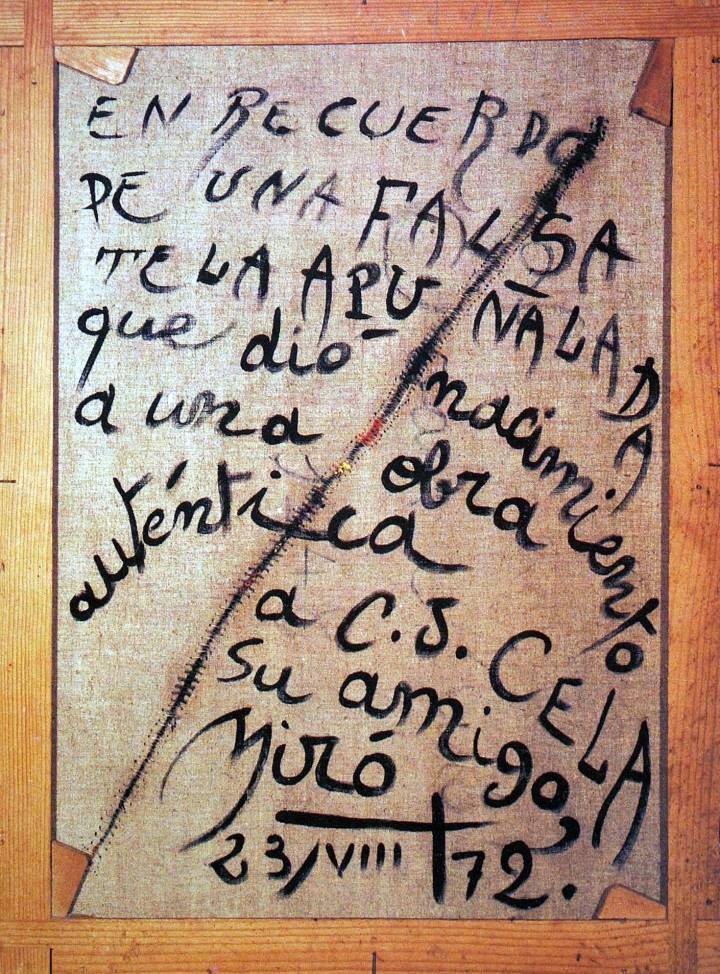 EN RECUERDO
DE UNA FALSA
TELA APUÑALADA
que dio nacimiento
a una obra
auténtica
a C.J. CELA
su amigo,
Miró
23/VIII 72.